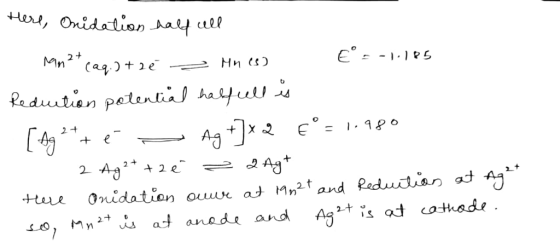 Here, Oxidation half cell
Mn²⁺ (aq.) + 2e⁻ ⇌ Mn (s) E° = -1.185
Reduction potential half cell is
[Ag²⁺ + e⁻ ⇌ Ag⁺] × 2 E° = 1.980
2 Ag²⁺ + 2e⁻ ⇌ 2 Ag⁺
Here Oxidation occur at Mn²⁺ and Reduction at Ag²⁺
so, Mn²⁺ is at anode and Ag²⁺ is at cathode.